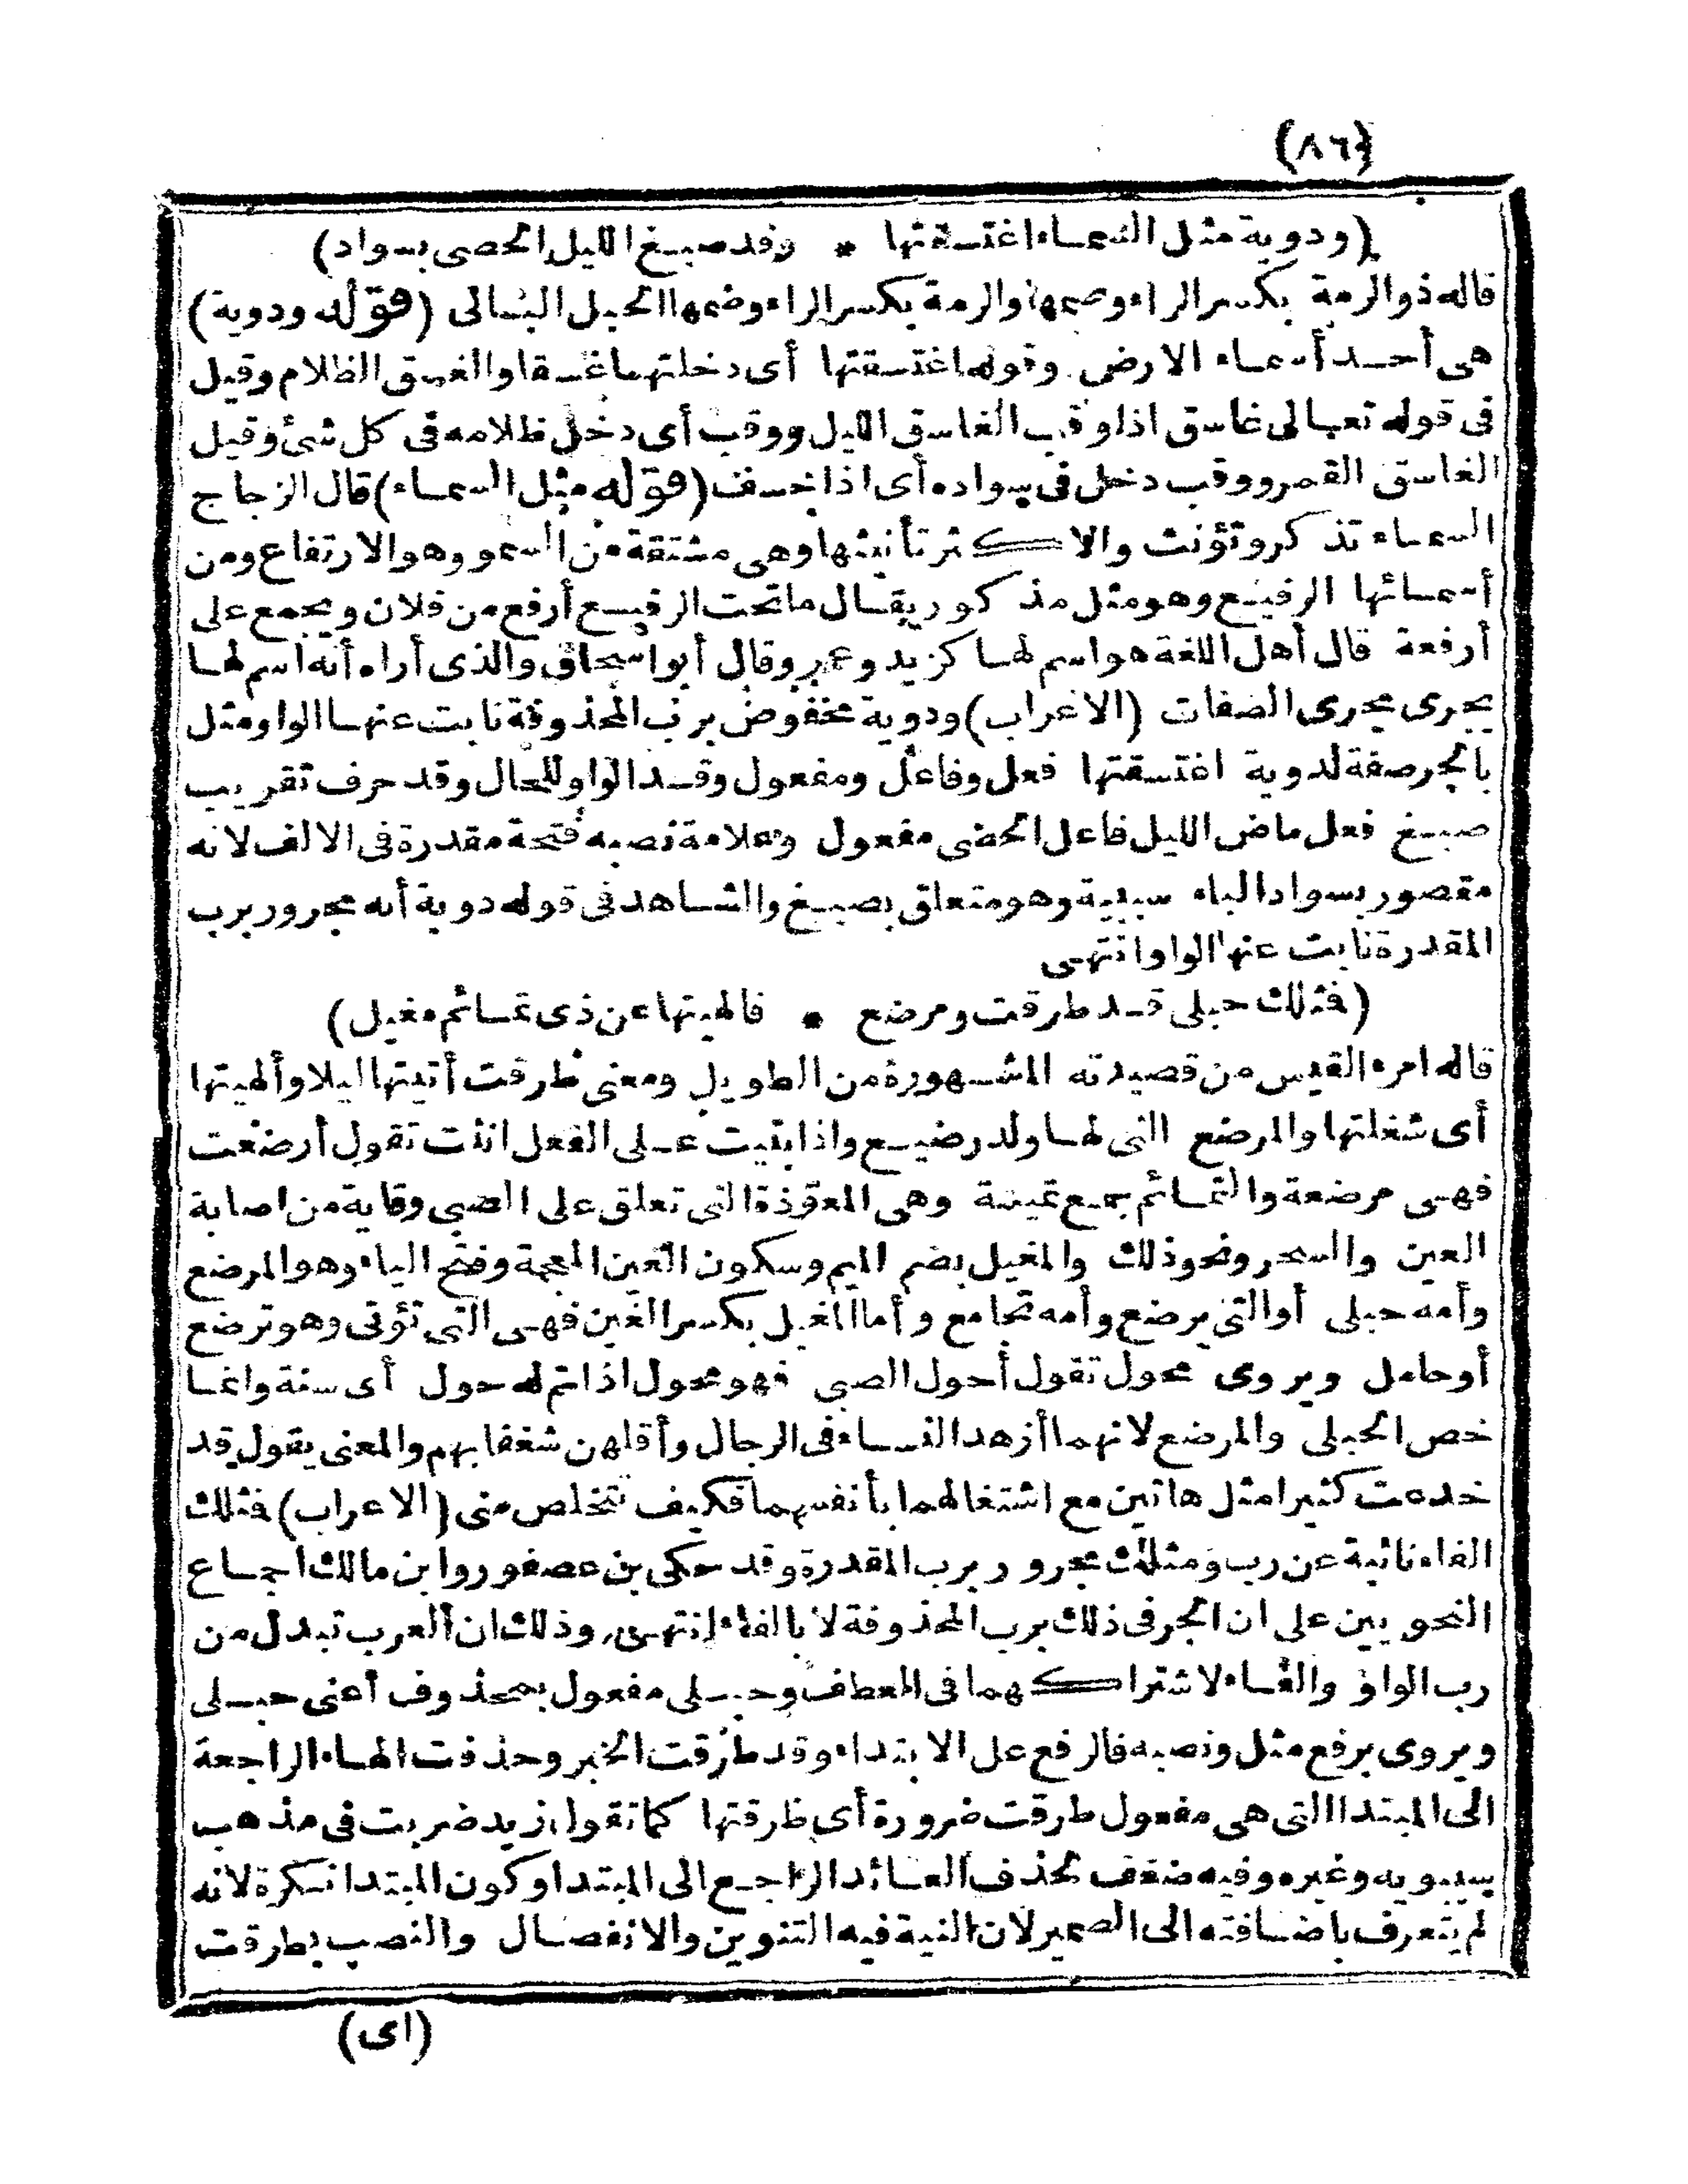 (٨٦)
(ودوية مثل السماء اغتسقتها * وقد صبغ الليل الحصى بسواد)
قاله ذو الرمة بكسر الراء وضمها والرمة بكسر الراء وضمها الحبل البالى (قوله ودوية)
هى أحد أسماء الارض وقوله اغتسقتها أى دخلتها غسقا والغسق الظلام وقيل
فى قوله تعالى غاسق اذا وقب الغاسق الليل ووقب أى دخل ظلامه فى كل شئ وقيل
الغاسق القمر ووقب دخل فى سواده أى اذا خسف (قوله مثل السماء) قال الزجاج
السماء تذكر وتؤنث والاكثر تأنيثها وهى مشتقة من السمو وهو الارتفاع ومن
أسمائها الرفيع وهو مثل مذكور يقال ما تحت الرفيع أرفع من فلان ويجمع على
أرفعة قال أهل اللغة هو اسم لها كزيد وعمر وقال أبو اسحاق والذى أراه أنه اسم لها
يجرى مجرى الصفات (الاعراب) ودوية مخفوض برب المحذوفة نابت عنها الواو مثل
بالجر صفة لدوية اغتسقتها فعل وفاعل ومفعول وقد الواو للحال وقد حرف تقريب
صبغ فعل ماض الليل فاعل الحصى مفعول وعلامة نصبه فتحة مقدرة فى الالف لانه
مقصور بسواد الباء سببية وهو متعلق بصبغ والشاهد فى قوله دوية أنه مجرور برب
المقدرة نابت عنها الواو انتهى
(فمثلك حبلى قد طرقت ومرضع * فالهيتها عن ذى تمائم مغيل)
قاله امرء القيس من قصيدته المشهورة من الطويل ومعنى طرقت أتيتها ليلا وألهيتها
أى شغلتها والمرضع التى لها ولد رضيع واذا بنيت على الفعل انثت تقول أرضعت
فهى مرضعة والتمائم جمع تميمة وهى المعوّذة التى تعلق على الصبى وقاية من اصابة
العين والسحر ونحو ذلك والمغيل بضم الميم وسكون الغين المعجمة وفتح الياء وهو المرضع
وأمه حبلى أو التى يرضع وأمه تجامع وأما المغيل بكسر الغين فهى التى تؤتى وهو ترضع
أو حامل ويروى محول تقول أحول الصبى فهو محول اذا تم له حول أى سنة وانما
خص الحبلى والمرضع لانهما أزهد النساء فى الرجال وأقلهن شغفا بهم والمعنى يقول قد
خدعت كثيرا مثل هاتين مع اشتغالهما بأنفسهما فكيف تتخلص منى (الاعراب) فمثلك
الفاء نائبة عن رب ومثلك مجرور برب المقدرة وقد حكى بن عصفور وابن مالك اجماع
النحويين على ان الجر فى ذلك برب المحذوفة لا بالفاء انتهى وذلك ان العرب تبدل من
رب الواو والفاء لاشتراكهما فى العطف وحبلى مفعول بمحذوف أعنى حبلى
ويروى برفع مثل ونصبه فالرفع على الابتداء وقد طرقت الخبر وحذفت الهاء الراجعة
الى المبتدا التى هى مفعول طرقت ضرورة أى طرقتها كما تقول زيد ضربت فى مذهب
سيبويه وغيره وفيه ضعف لحذف العائد الراجع الى المبتدا وكون المبتدا نكرة لانه
لم يتعرف باضافته الى الضمير لان النية فيه التنوين والانفصال والنصب بطرقت
(اى)